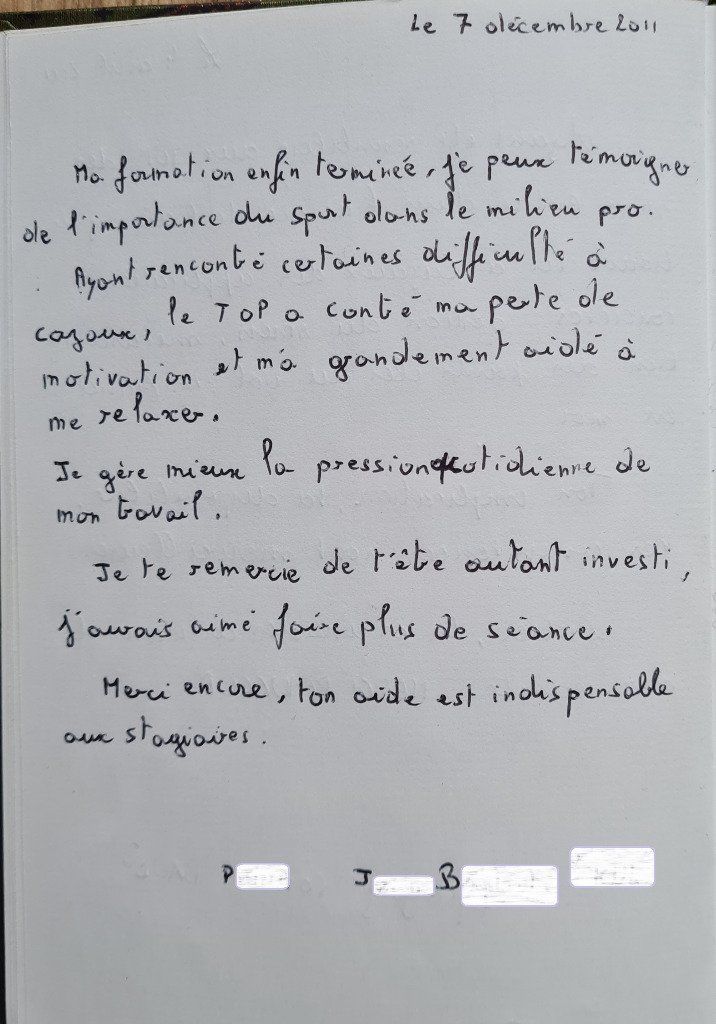 Le 7 décembre 2011
Ma formation enfin terminée, je peux témoigner
de l'importance du sport dans le milieu pro.
Ayant rencontré certaines difficulté à
cazaux, le TOP a contré ma perte de
motivation et m'a grandement aidé à
me relaxer.
Je gère mieux la pression quotidienne de
mon travail.
Je te remercie de t'être autant investi,
j'aurais aimé faire plus de séance.
Merci encore, ton aide est indispensable
aux stagiaires.
P J B